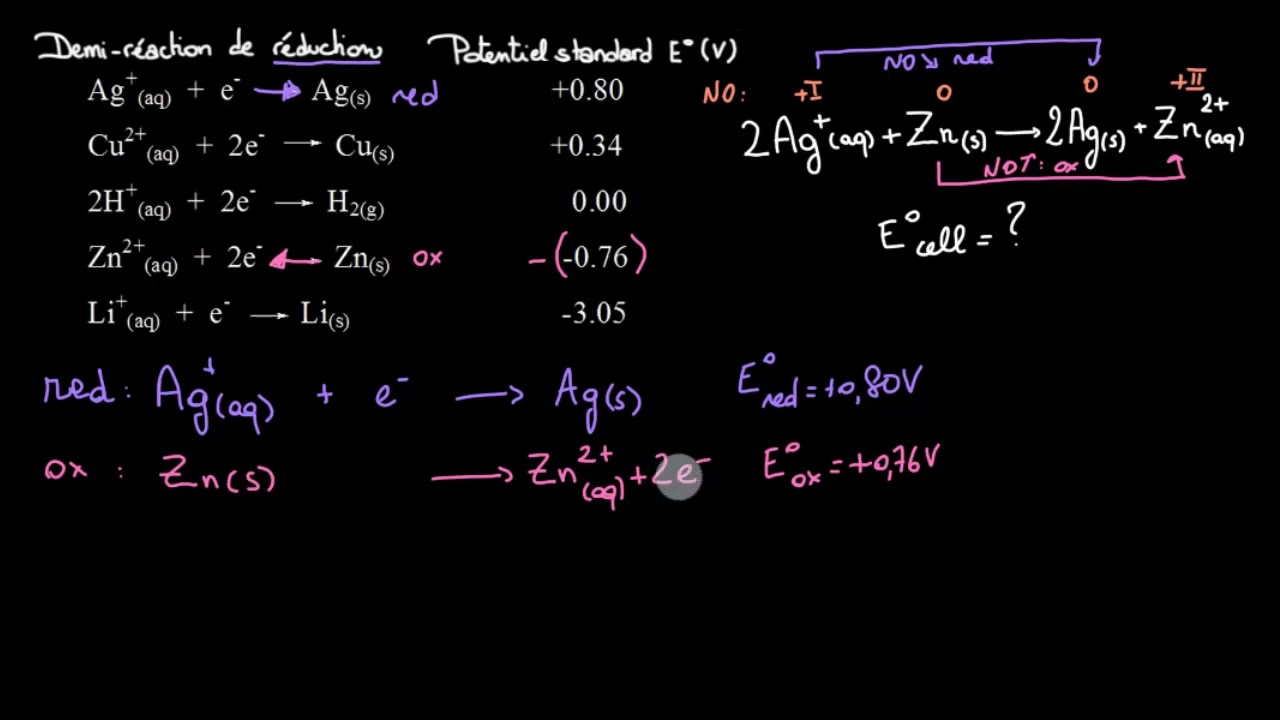 Demi-réaction de réduction Potentiel standard E°(V)
Ag⁺(aq) + e⁻ → Ag(s) red +0.80
Cu²⁺(aq) + 2e⁻ → Cu(s) +0.34
2H⁺(aq) + 2e⁻ → H₂(g) 0.00
Zn²⁺(aq) + 2e⁻ ← Zn(s) ox -(-0.76)
Li⁺(aq) + e⁻ → Li(s) -3.05
NO↘ red
NO: +I 0 0 +II
2Ag⁺(aq) + Zn(s) → 2Ag(s) + Zn²⁺(aq)
NO↑: ox
E°cell = ?
red: Ag⁺(aq) + e⁻ → Ag(s) E°red = +0,80V
ox: Zn(s) → Zn²⁺(aq) + 2e⁻ E°ox = +0,76V